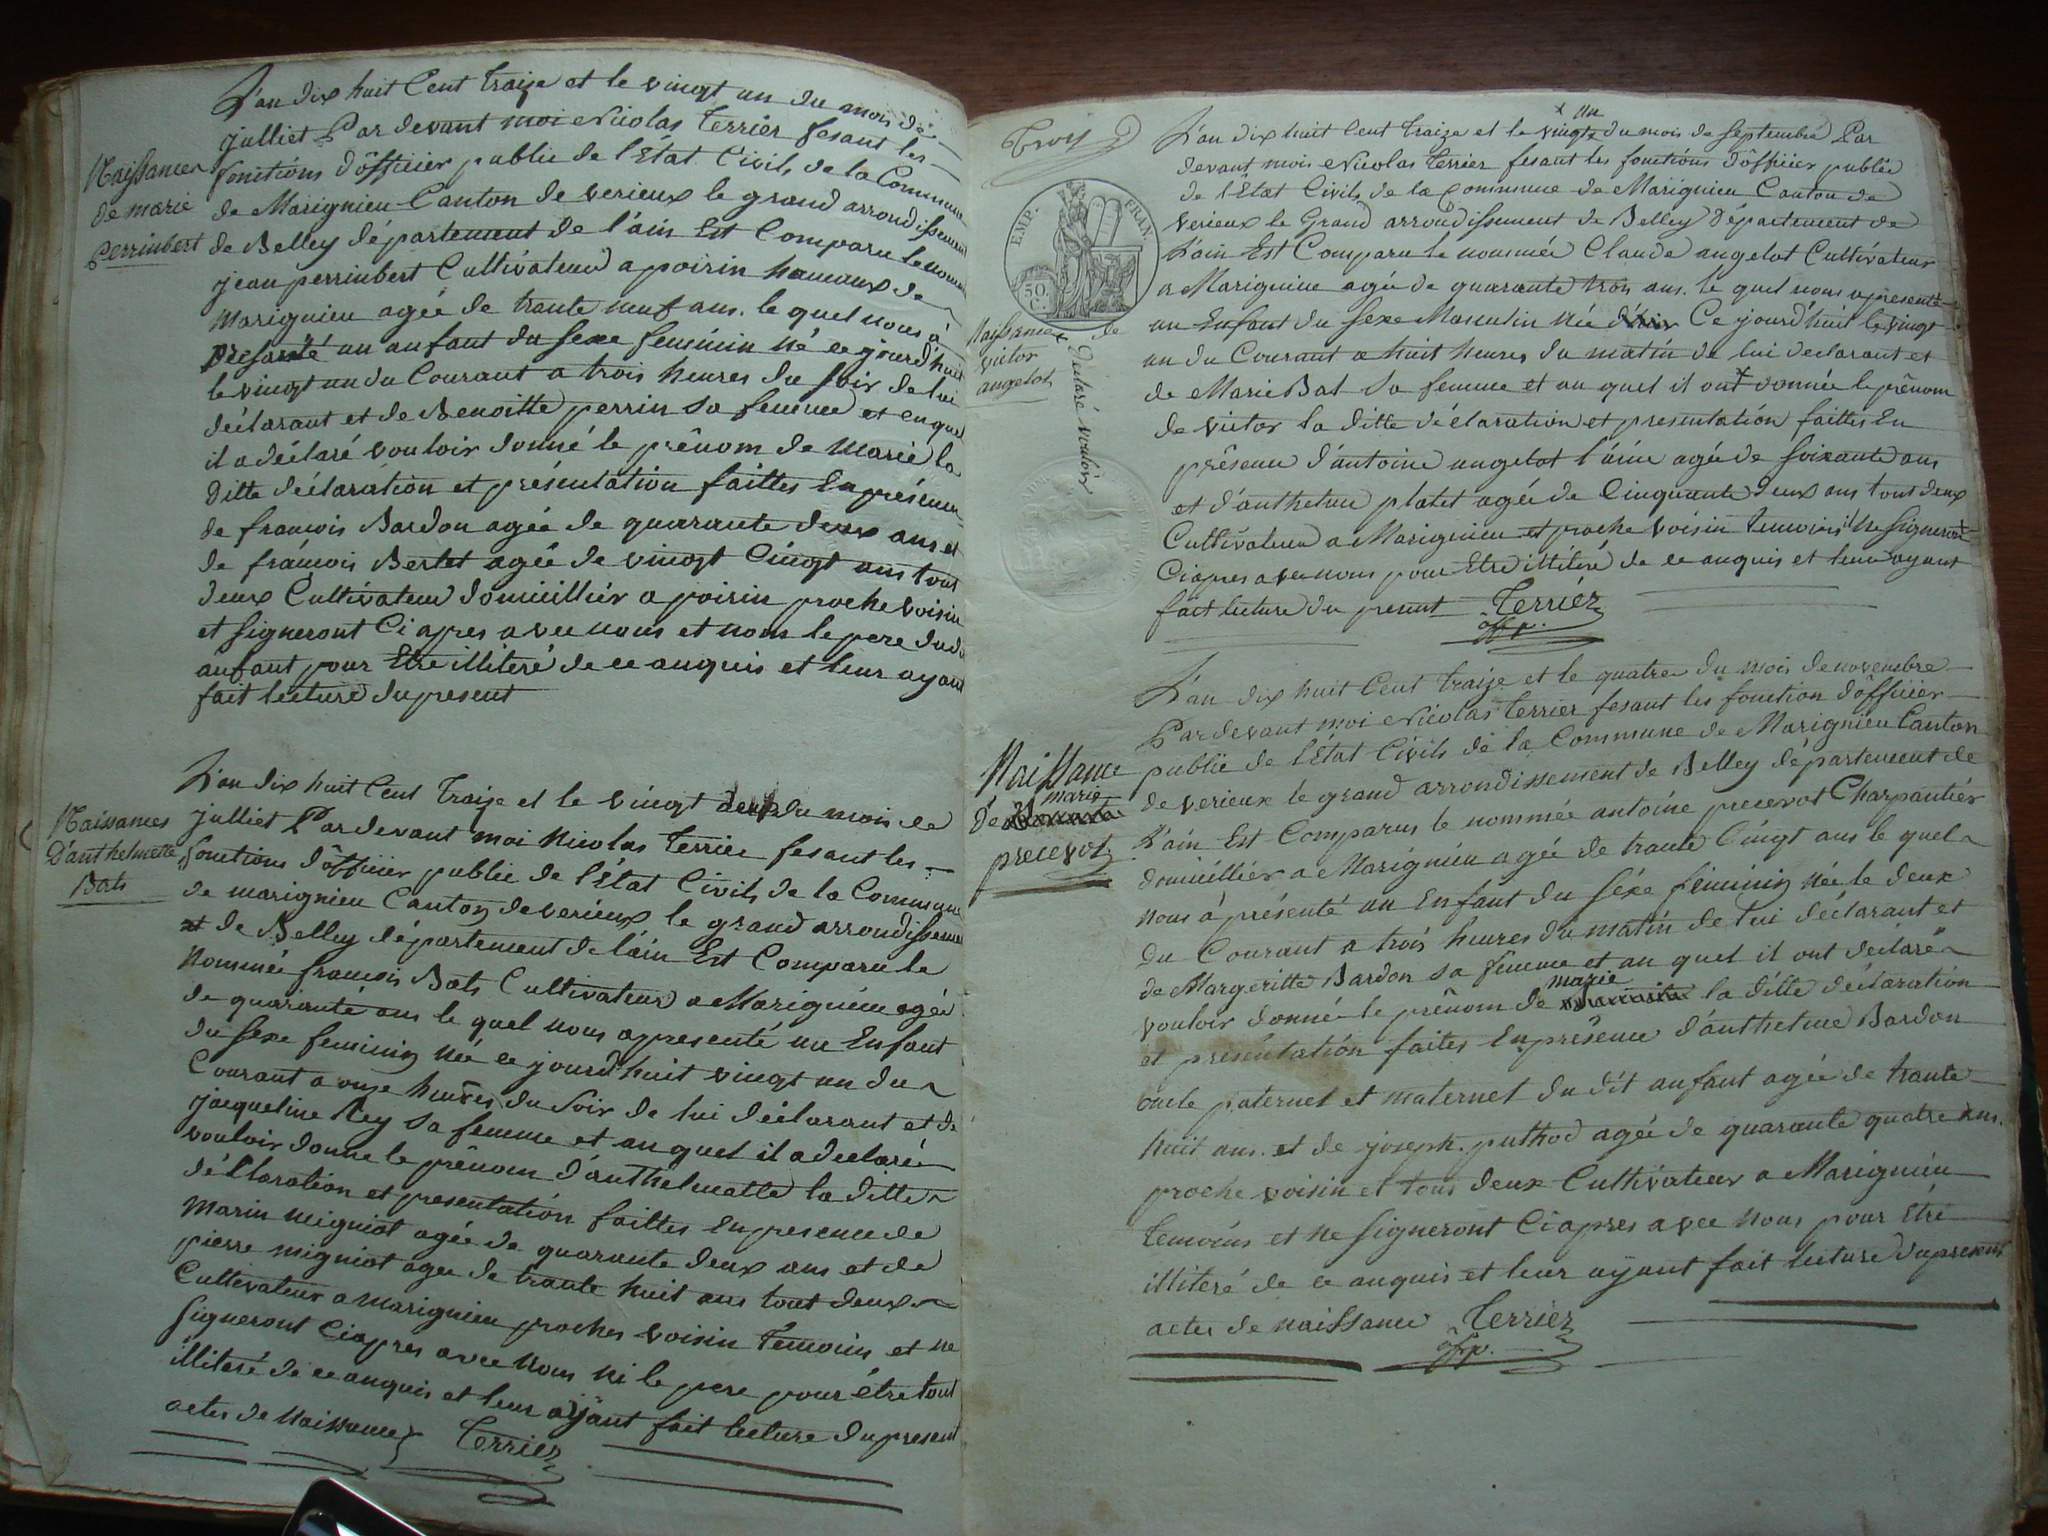 L'an dix huit Cent traize et le vingt un du mois de
julliet Par devant moi Nicolas Terrier fesant les
fonctions d'ôfficier public de l'Etat Civils de la Commune
de Marignieu Canton de verieux le grand arrondissement
de Belley département de l'ain Est Comparu le nommé
jean perrinbert Cultivateur a poirin hamaux de
Marignieu agée de trante neuf ans. le quel nous à
presanté un anfant du sexe feminin né ce jourd'huit
le vingt un du Courant a trois heures du soir de lui
déclarant et de Benoitte perrin sa femme et en quel
il a déclaré vouloir donné le prênom de Marie la
ditte déclaration et présentation faittes En présence
de francois Bardon agée de quarante deux ans et
de francois Bertet agée de vingt Cinqt ans tous
deux Cultivateur domicillier a poirin proche voisin
et signeront Ci apres avec nous et nom le pere dudi
anfant pour Etre illiteré de ce anquis et leur ayant
fait lecture du present
Naissances
de marie
Perrinbert
L'an dix huit Cent traize et le vingt deux du mois de
julliet Par devant moi Nicolas Terrier fesant les
fonctions d'ôfficier public de l'État Civils de la Commune
de marignieu Canton de verieux le grand arrondisseme
et de Belley département de l'ain Est Comparu le
Nommée francois Bats Cultivateur a Marignieu agée
de quarante ans le quel nous apresenté un Enfant
du sexe feminin née ce jourd'huit vingt un du
Courant a onze heures du soir de lui déclarant et de
jacqueline Rey sa femme et au quel il a declarée
vouloir donne le prênom d'anthelmette la ditte
déClaration et presentation faittes En presence de
Marin migniot agée de quarante deux ans et de
pierre migniot agee de trante huit ans tout deux
Cultivateur a marignieu proches voisin témoins et ne
signeront Ciapres avec nous ni le pere pour être tout
illiteré de ce anquis et leur ayant fait lecture du present
actes de Naissances Terrier
Naissances
D'anthelmette
Bats
Trois
EMP. FRAN.
50 C.
L'an dix huit Cent traize et le vingt x un du mois de septembre Par
devant mois Nicolas Terrier fesant les fonctions d'ôfficier public
de l'État Civils de la Commune de Marignieu Canton de
verieux le Grand arrondissement de Belley Département de
L'ain Est Comparu le nommée Claude angelot Cultivateur
a Marignieu agée de quarante trois ans. le quel nous apresenté
un Enfant du sexe Masculin née Ce jourd'huit le vingt
un du Courant a huit heures du matin de lui declarant et
de Marie Bat sa femme et au quel il ont x donnée le prênom
de victor la ditte déclaration et presentation faittes En
présence d'antoine angelot l'ainé agée de soixante ans
et d'anthelme platet agée de Cinquante deux ans tout deux
Cultivateur a Marignieu et proche voisin temoins ne signeront
Ciapres avec nous pour Etre illiteré de ce anquis et leur ayant
fait lecture du present Terrier
offp.
Naissance de
victor
angelot
x Declaré vouloir
L'an dix huit Cent traize et le quatre du mois de novembre
Par devant moi Nicolas Terrier fesant les fonction d'ôfficier
public de l'État Civils de la Commune de Marignieu Canton
de verieux le grand arrondissement de Belley département de
L'ain Est Comparus le nommée antoine precevot Charpantiér
domicilliér a Marignieu agée de trante Cinqt ans le quel
nous à présenté un Enfant du séxe féminin née le deux
du Courant a trois heures du matin de lui déclarant et
de Margeritte Bardon sa femme et au quel il ont déclaré
vouloir donné le prênom de marie la ditte déclaration
et présentation faites En présence d'anthelme Bardon
oncle paternel et maternel du dit anfant agée de trante
huit ans. et de joseph. puthod agée de quarante quatre ans.
proche voisin et tous deux Cultivateur a Marignieu
temoins et ne signeront Ciapres avec nous pour Etré
illiteré de ce anquis et leur ayant fait lecture du present
actes de naissance Terrier
offp.
Naissance
de marie
precevot